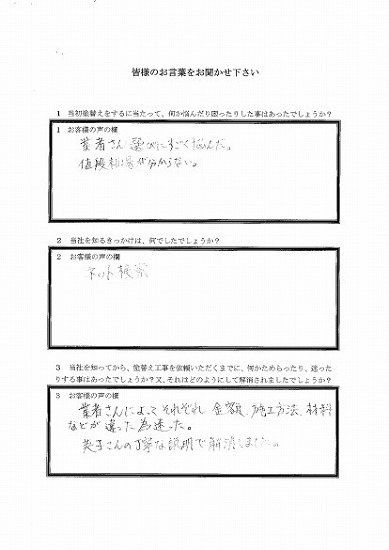 皆様のお言葉をお聞かせ下さい
1 当初塗替えをするに当たって、何か悩んだり困ったりした事はあったでしょうか?
1 お客様の声の欄
業者さん選びにすごく悩んだ。
値段相場が分からない。
2 当社を知るきっかけは、何でしたでしょうか?
2 お客様の声の欄
ネット検索
3 当社を知ってから、塗替え工事を依頼いただくまでに、何かためらったり、迷った
りする事はあったでしょうか?又、それはどのようにして解消されましたでしょうか?
3 お客様の声の欄
業者さんによって それぞれ 金額、施工方法、材料
などが違った為迷った。
さんの丁寧な説明で解消しました。